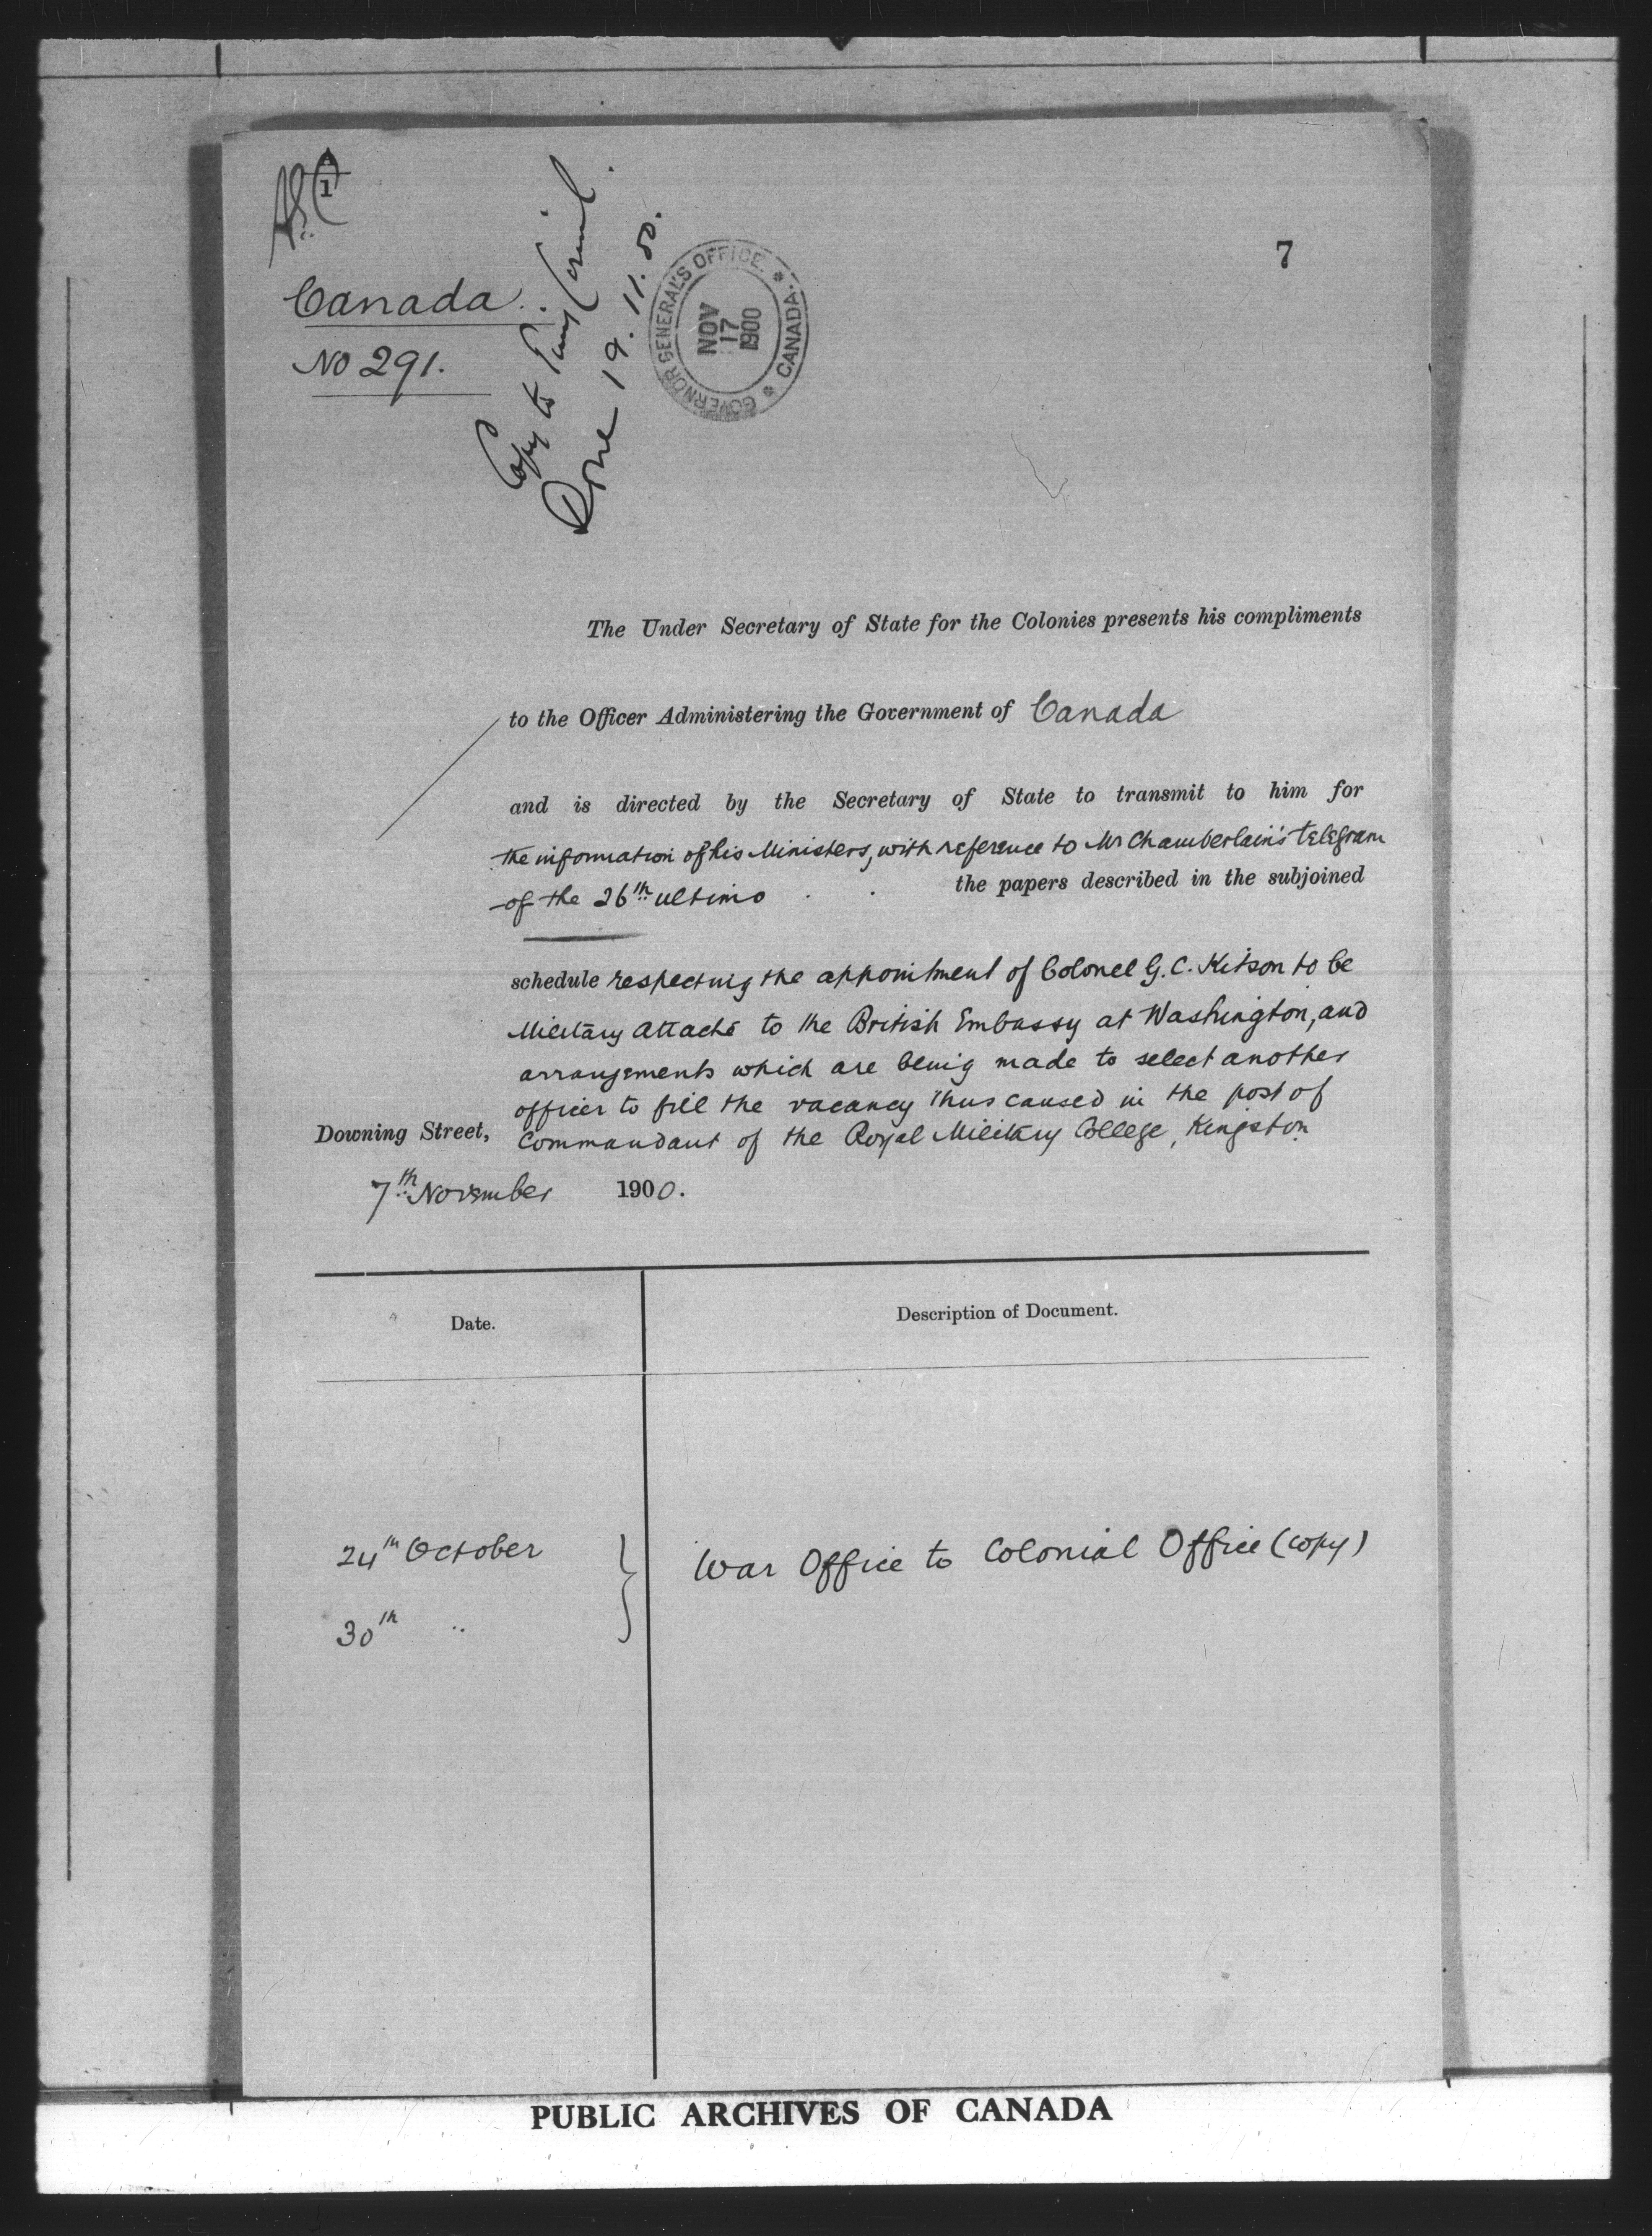 1
Canada.
No 291.
Copy to Privy Council.
Done 19.11.00.
GOVERNOR GENERAL'S OFFICE. * CANADA. *
NOV
17
1900
7
The Under Secretary of State for the Colonies presents his compliments
to the Officer Administering the Government of Canada
and is directed by the Secretary of State to transmit to him for
the information of his Ministers, with reference to Mr Chamberlain's telegram
of the 26th ultimo the papers described in the subjoined
schedule respecting the appointment of Colonel G. C. Kitson to be
Military Attaché to the British Embassy at Washington, and
arrangements which are being made to select another
officer to fill the vacancy thus caused in the post of
Commandant of the Royal Military College, Kingston
Downing Street,
7th November 1900.
Date.
Description of Document.
24th October
War Office to Colonial Office (copy)
30th "
PUBLIC ARCHIVES OF CANADA